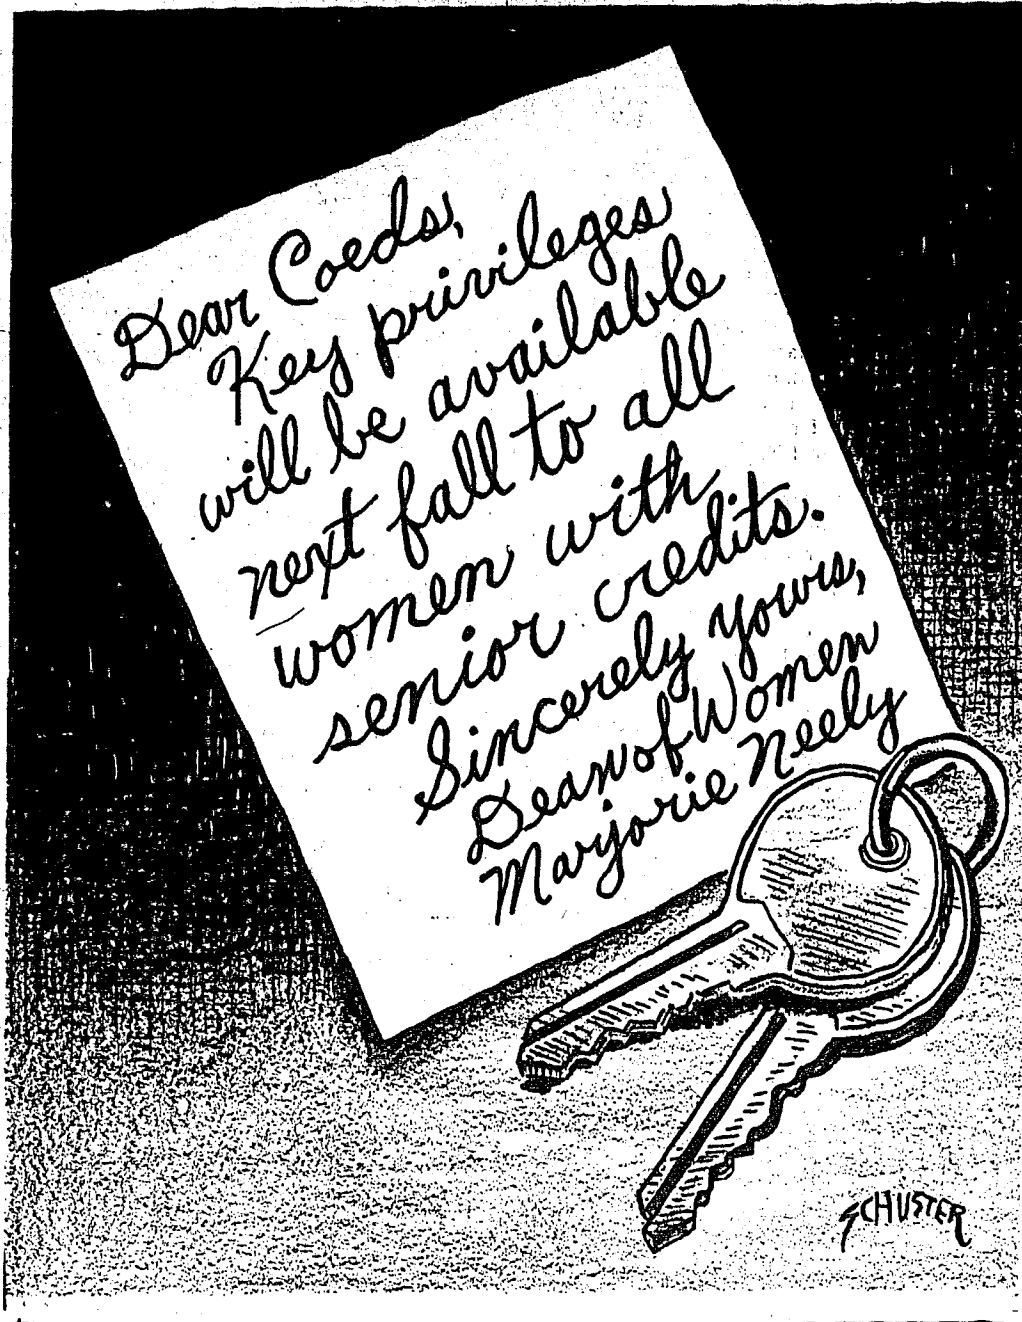 Dear Coeds,
Key privileges
will be available
next fall to all
women with
senior credits.
Sincerely yours,
Dean of Women
Marjorie Neely
SCHUSTER